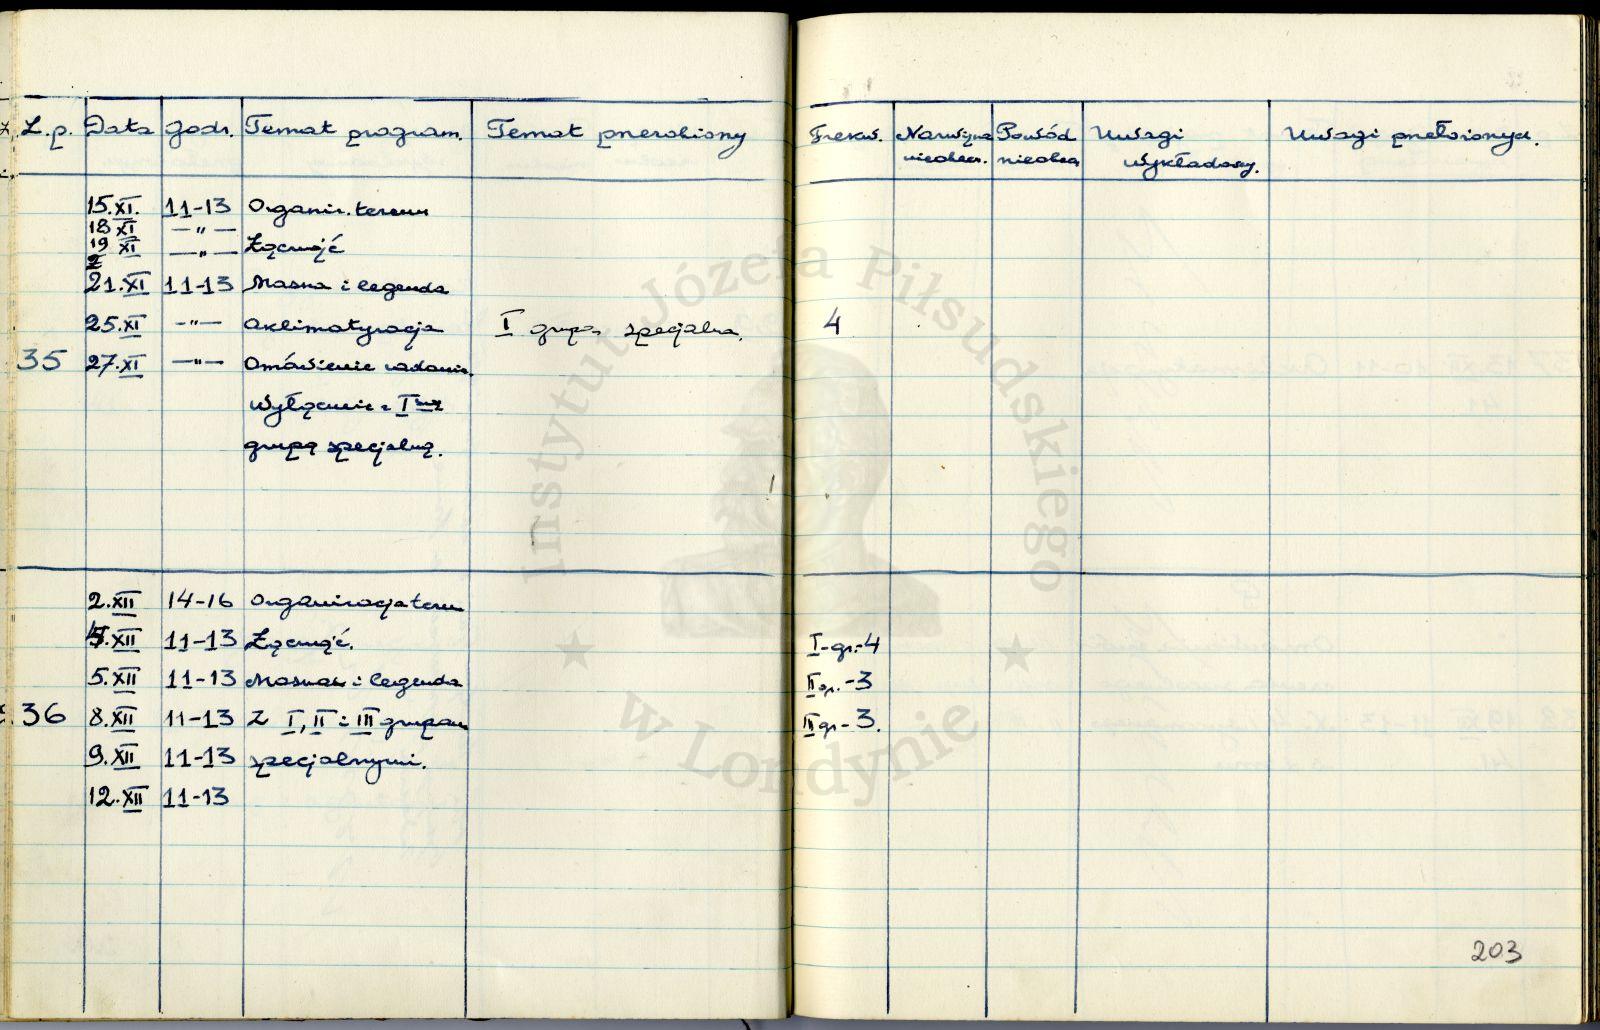 L.p. Data godz. Temat program. Temat przerobiony Frekw. Nazwiska nieobecn. Powód nieobec. Uwagi wykładowcy. Uwagi przełożonych.
15.XI. 11-13 Organiz. terenu
18 XI —"—
19 XI —"— Łączność
21.XI 11-13 Maska i legenda
25.XI —"— Aklimatyzacja I grupa specjalna. 4
35 27.XI —"— Omówienie zadania.
Wyłącznie z I-szą
grupą specjalną.
2.XII 14-16 Organizacja teren
4.XII 11-13 Łączność. I-gr.-4
5.XII 11-13 Maska i legenda II gr.-3
36 8.XII 11-13 Z I, II i III grupami III gr-3.
9.XII 11-13 specjalnymi.
12.XII 11-13
203
Instytut Józefa Piłsudskiego
w Londynie